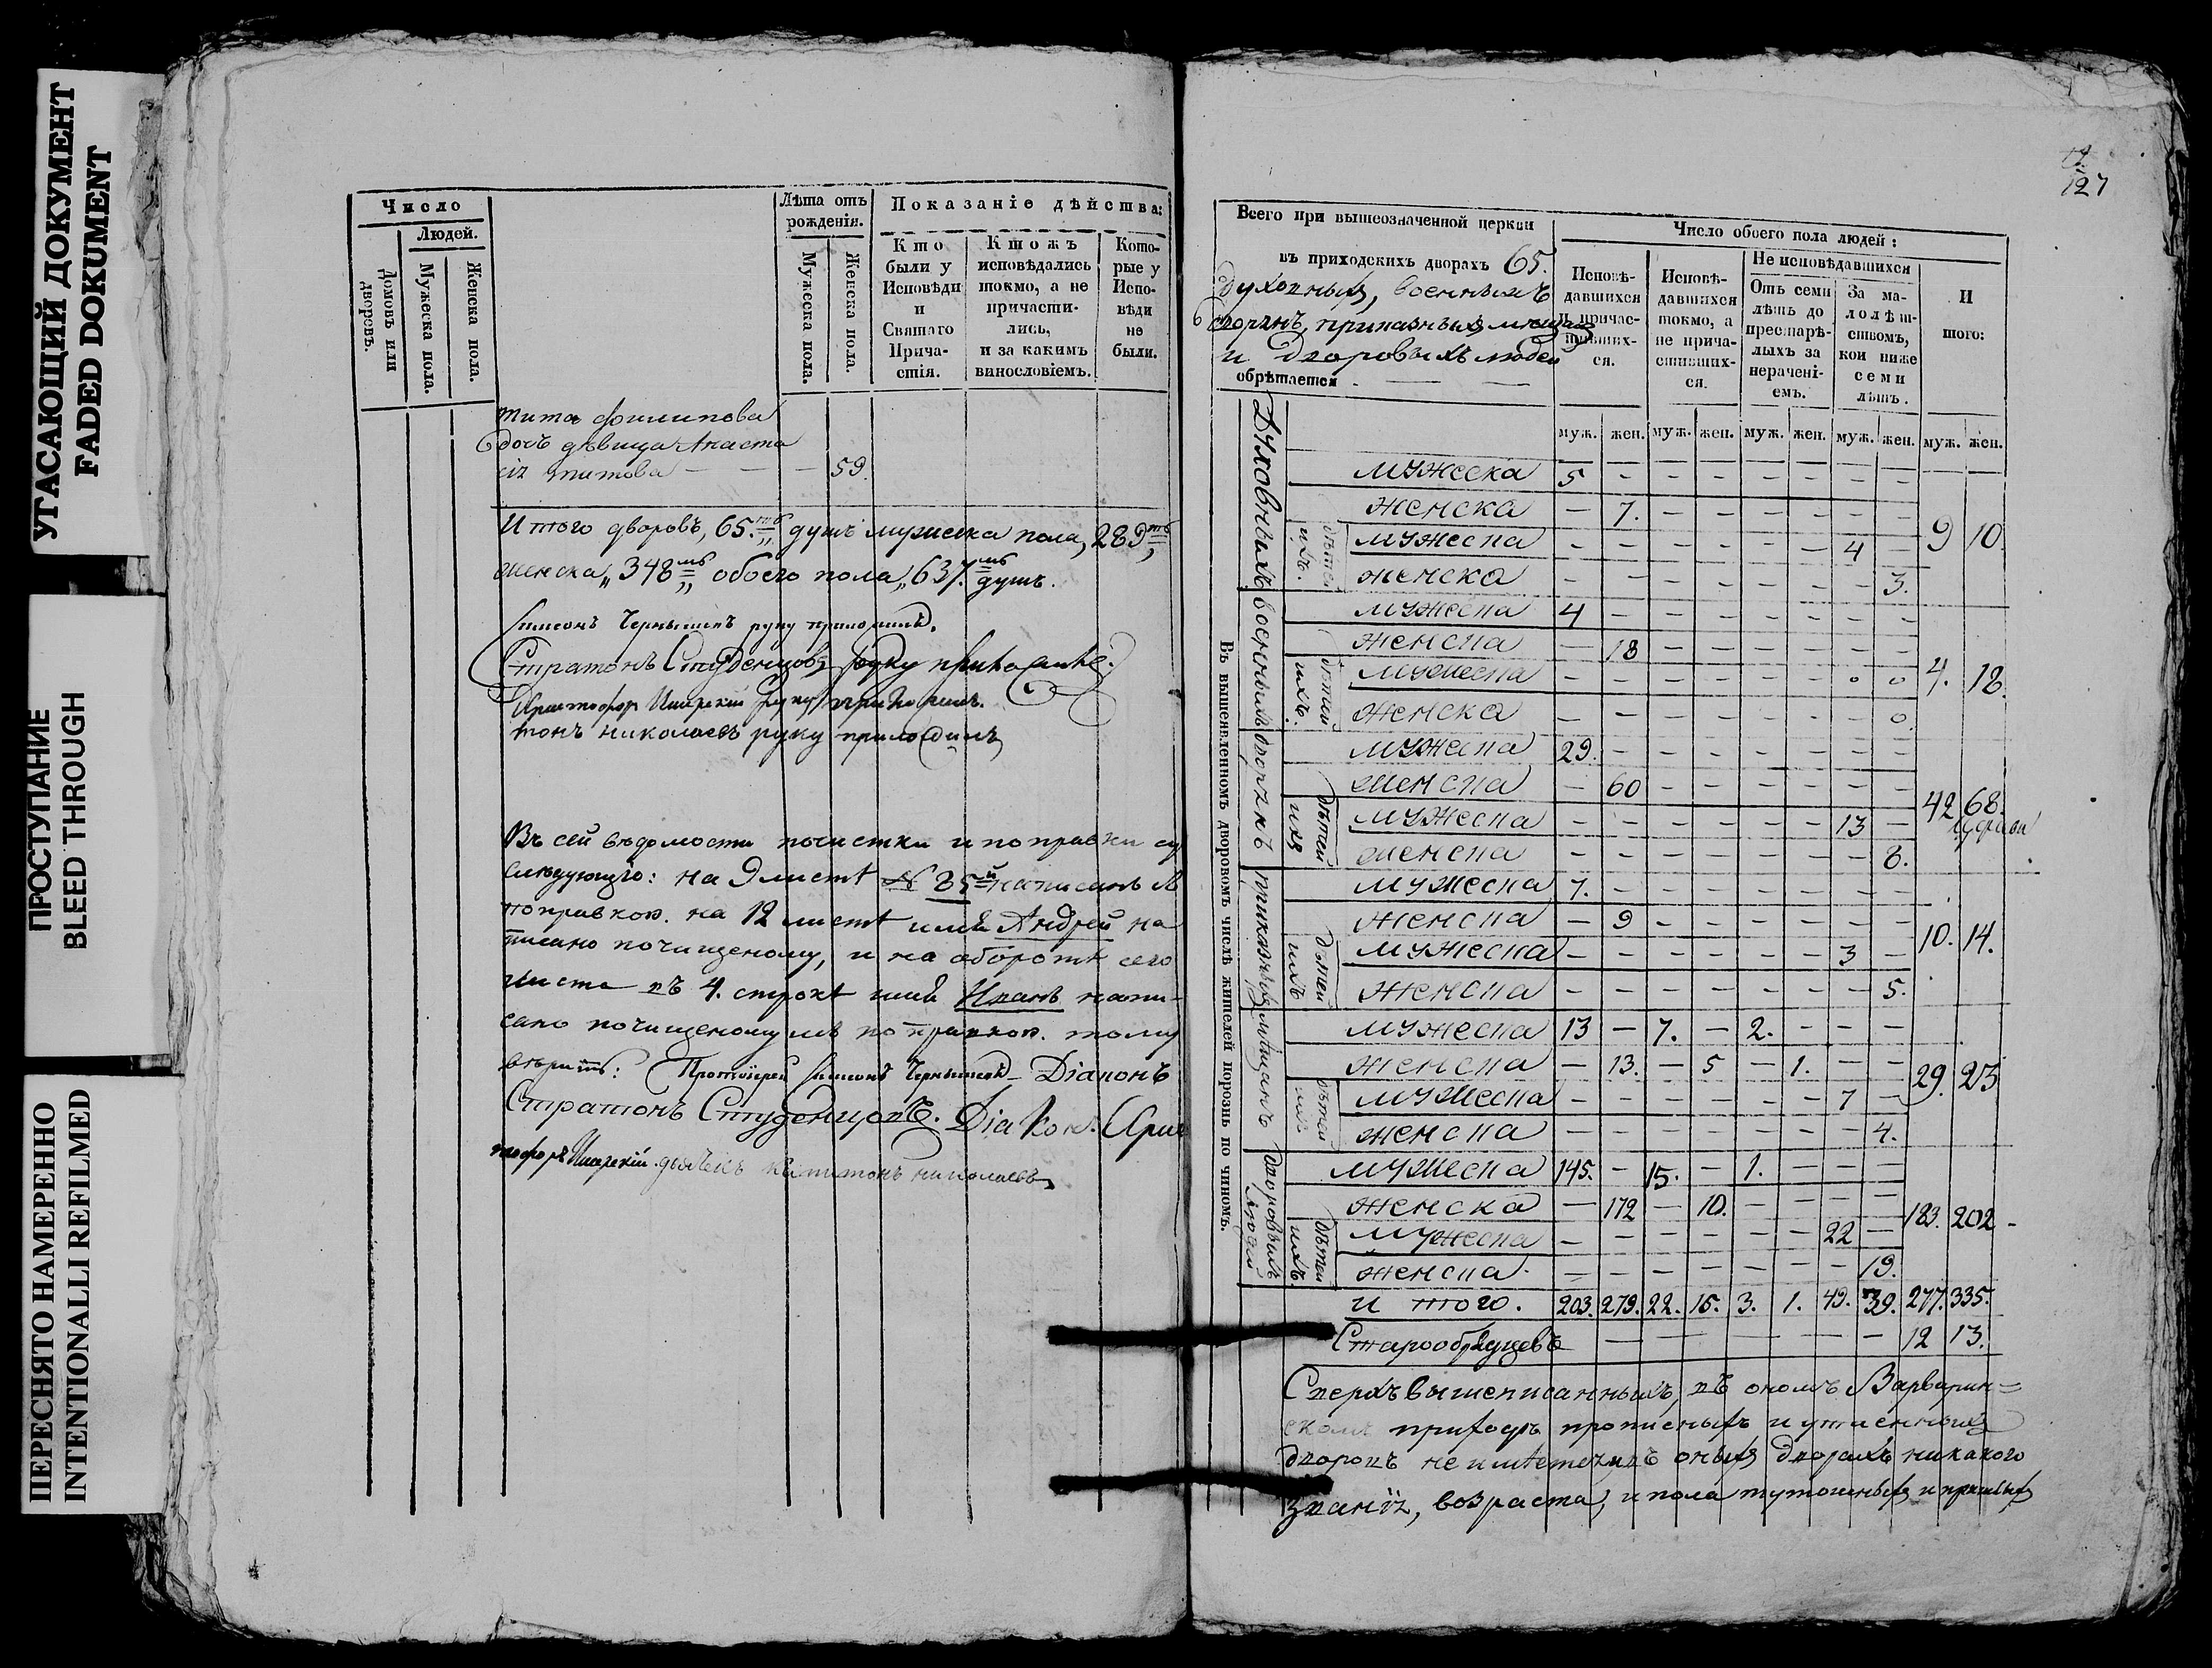 УГАСАЮЩИЙ ДОКУМЕНТ
FADED DOKUMENT
ПРОСТУПАНИЕ
BLEED THROUGH
ПЕРЕСНЯТО НАМЕРЕННО
INTENTIONALLI REFILMED
Число
Людей.
Домовъ или дворовъ.
Мужеска пола.
Женска пола.
Лѣта отъ рожденія.
Мужеска пола.
Женска пола.
Показаніе дѣйства:
Кто были у Исповѣди и Святаго Прича-стія.
Ктожъ исповѣдались токмо, а не причасти-лись, и за какимъ винословіемъ.
Кото-рые у Испо-вѣди не были.
тита филипова
дочь дѣвица Анаста
сіѧ титова — — — 59.
Итого дворовъ, 65.ть душъ мужеска пола, 289ть
женска „348мь„ обоего пола „637.мь душъ.
Симеонъ Чернышевъ руку приложилъ.
Стратонъ Студенцовъ руку приложилъ.
руку приложилъ.
тонъ николаевъ руку приложилъ
Въ сей вѣдомости почистки и поправки су
слѣдующіе: на 9 листѣ № 85й написанъ
поправкою. на 12 листѣ имя Андрей на
писано почищеному, и на оборотѣ сего
листа въ 4. строкѣ имя Иванъ напи-
сано почищеному поправкою. тому
вѣрить: Протоіерей Симеонъ Чернышевъ – Діаконъ
Стратонъ Студенцовъ. Діакон. Хрис
тофоръ дьячекъ капитонъ николаевъ
127
Всего при вышеозначенной церкви
въ приходскихъ дворахъ 65.
духовныхъ, военныхъ
сторанъ, приказныхъ мещанъ
и дворовыхъ людей
обрѣтается — —
Число обоего пола людей:
Исповѣ-давшихся и причас-тивших-ся.
Исповѣ-давшихся токмо, а не прича-стивших-ся.
Не исповѣдавшихся
Отъ семи лѣтъ до престарѣ-лыхъ за нерачені-емъ.
За ма-лолѣт-ствомъ, кои ниже семи лѣтъ.
И того:
муж. жен. муж. жен. муж. жен. муж. жен. муж. жен.
Въ вышеявленномъ дворовомъ числѣ жителей порознь по чиномъ.
Духовныхъ
мужеска 5 – – – – – – –
женска – 7. – – – – – – 9 10.
дѣтей ихъ.
мужеска – – – – – – 4 –
женска – – – – – – – 3.
военныхъ
мужеска 4 – – – – – – –
женска – 18 – – – – – – 4. 18.
дѣтей ихъ.
мужеска – – – – – – 0 0
женска – – – – – – – 0
мужеска 29. – – – – – – –
женска – 60 – – – – – – 42 68.
дѣтей ихъ
мужеска – – – – – – 13 –
женска – – – – – – – 8.
приказныхъ
мужеска 7. – – – – – – –
женска – 9 – – – – – – 10. 14.
дѣтей ихъ
мужеска – – – – – – 3 –
женска – – – – – – – 5.
мѣщанъ
мужеска 13 – 7. – 2. – – –
женска – 13. – 5 – 1. – – 29. 23
дѣтей ихъ
мужеска – – – – – – 7 –
женска – – – – – – – 4.
дворовыхъ людей
мужеска 145. – 15. – 1. – – –
женска – 172 – 10. – – – – 183. 202 -
дѣтей ихъ.
мужеска – – – – – – 22 –
женска – – – – – – – 19.
и того. 203. 279. 22. 15. 3. 1. 49. 39. 277. 335.
Старообрядцевъ — — — — — — 12 13.
Сверхъ вышеписанныхъ, въ ономъ Варварин=
скомъ приходѣ прописныхъ и утаенныхъ
дворовъ не имѣется, въ оныхъ дворахъ никакого
званіѧ, возраста, и пола тутошныхъ и пришлыхъ